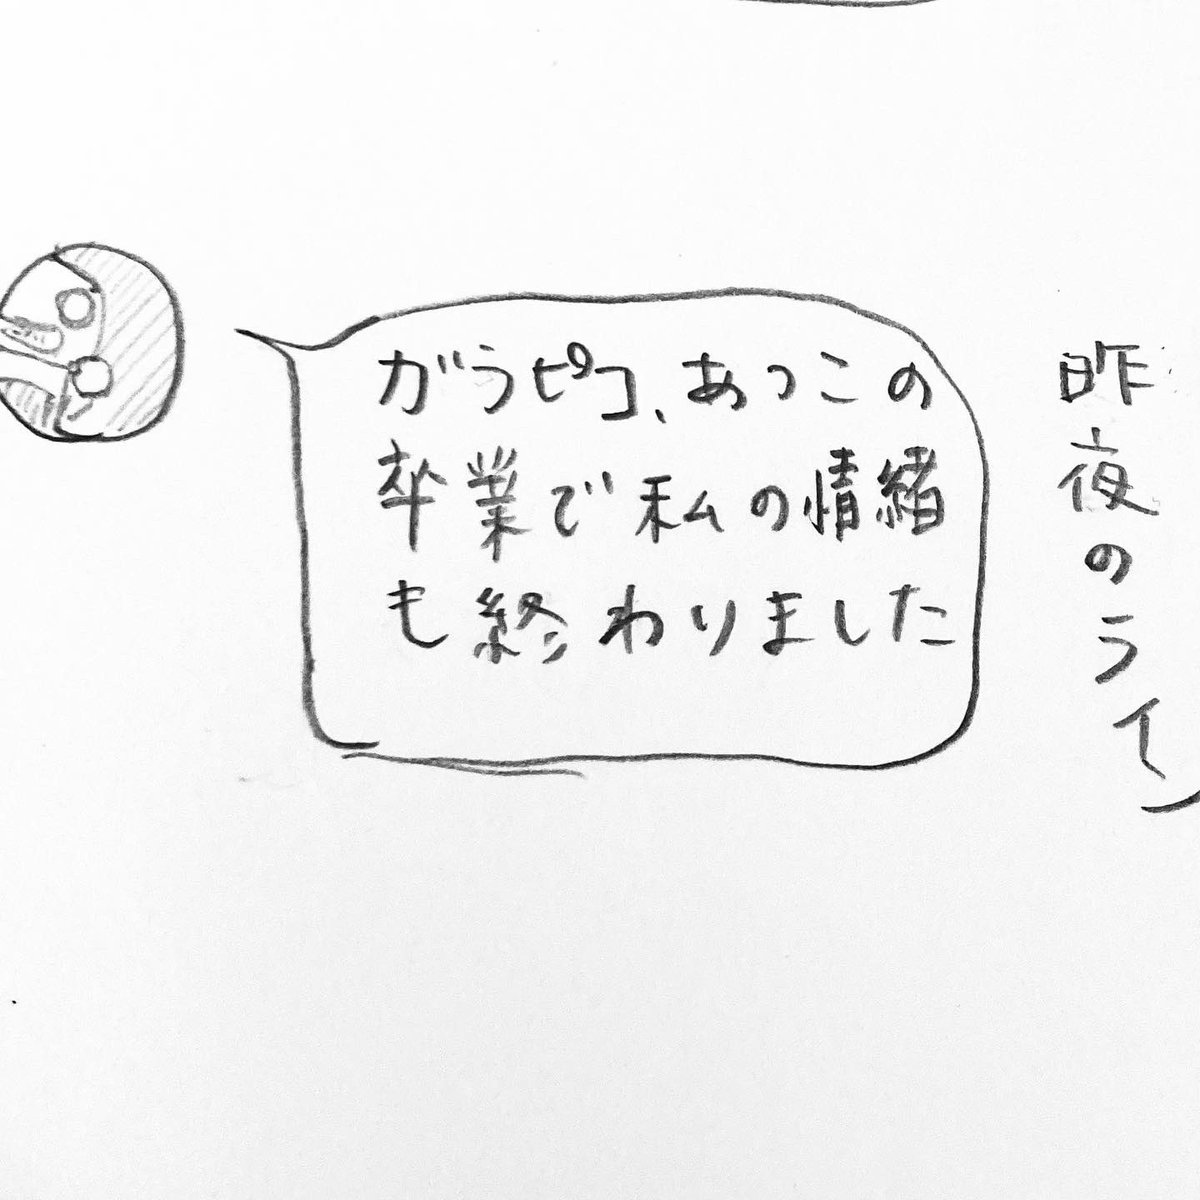 昨夜のライン
ガラピコ、あつこの
卒業で私の情緒
も終わりました